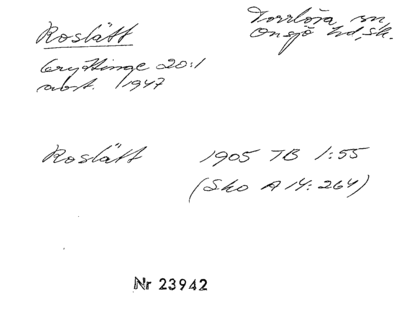 Roslätt
Torrlösa sn,
Onsjö hd, Sk.
Gryttinge 20:1
avst. 1947
Roslätt 1905 TB 1:55
(Sko A 14: 264)
Nr 23942